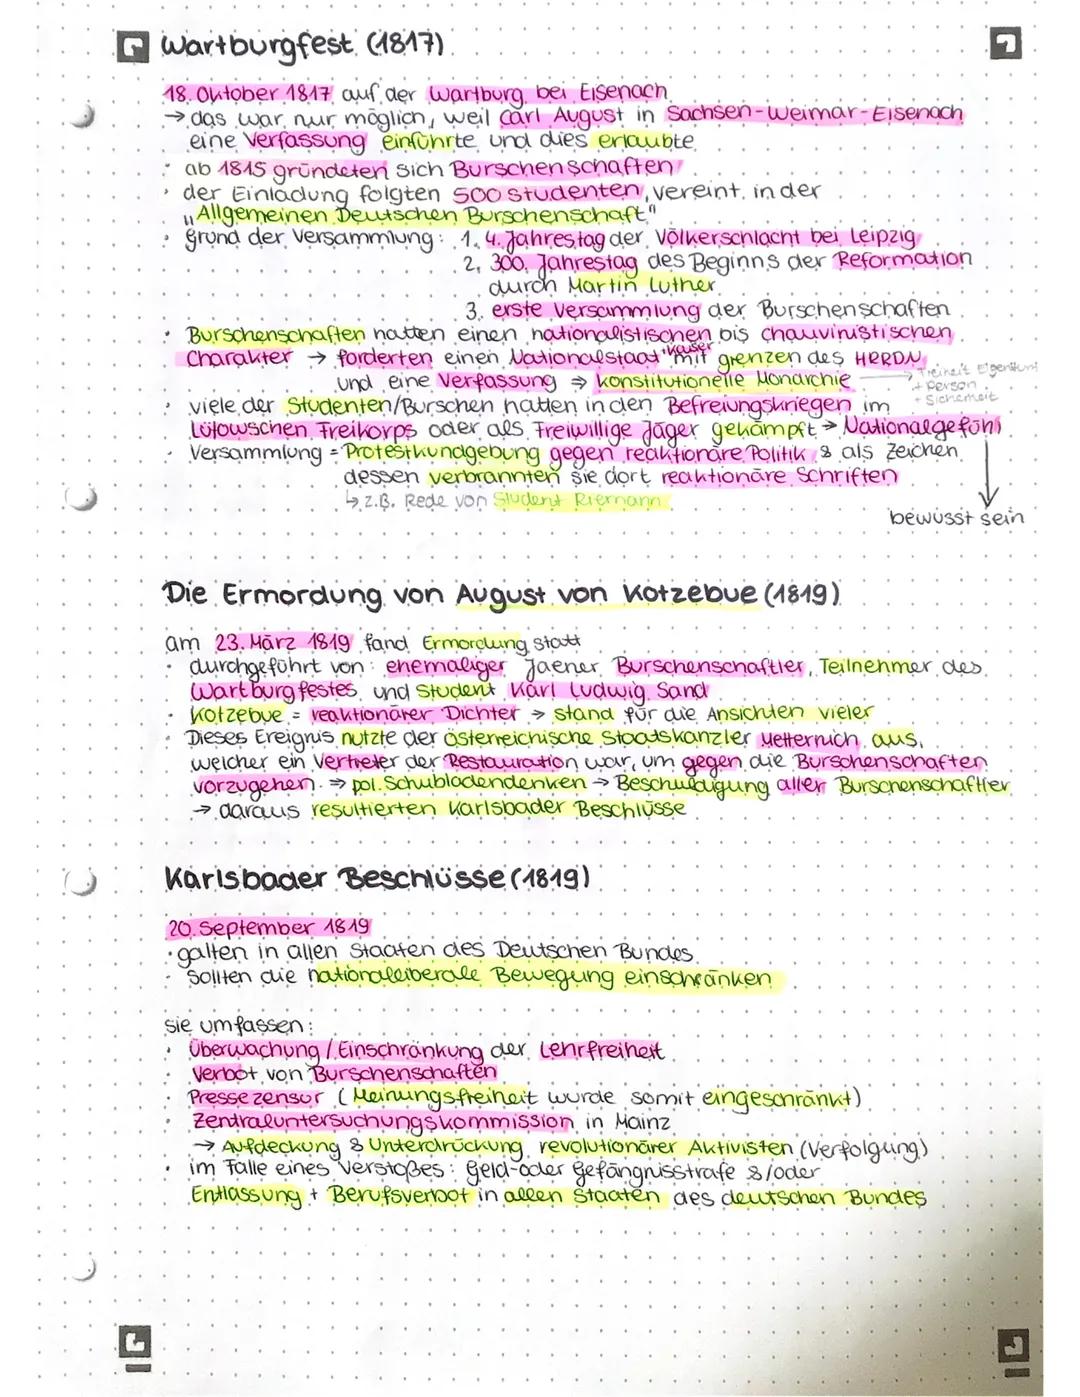 Wartburgfest (1817)
18. Oktober 1817 auf der Wartburg bei Eisenach
→ das war nur möglich, weil Carl August in Sachsen-Weimar-Eisenach
eine Verfassung einführte und dies erlaubte
· ab 1815 gründeten sich Burschenschaften
· der Einladung folgten 500 Studenten, vereint in der
„Allgemeinen Deutschen Burschenschaft"
· Grund der Versammlung: 1. 4. Jahrestag der Völkerschlacht bei Leipzig
2. 300. Jahrestag des Beginns der Reformation
durch Martin Luther
3. erste Versammlung der Burschenschaften
· Burschenschaften hatten einen nationalistischen bis chauvinistischen
Charakter → forderten einen Nationalstaat +Kaiser mit grenzen des HRRDN
und eine Verfassung ⇒ konstitutionelle Monarchie → Freiheit Eigentum
+ Person
+ Sicherheit
· viele der Studenten/Burschen hatten in den Befreiungskriegen im
Lützowschen Freikorps oder als Freiwillige Jäger gekämpft → Nationalgefühl
· Versammlung = Protestkundgebung gegen reaktionäre Politik & als Zeichen
dessen verbrannten sie dort reaktionäre Schriften
↳ z.B. Rede von Student Riemann
bewusst sein
Die Ermordung von August von Kotzebue (1819)
am 23. März 1819 fand Ermordung statt
· durchgeführt von: ehemaliger Jaener Burschenschaftler, Teilnehmer des
Wartburgfestes und Student Karl Ludwig Sand
· Kotzebue = reaktionärer Dichter → stand für die Ansichten vieler
· Dieses Ereignis nutzte der österreichische Staatskanzler Metternich aus,
welcher ein Vertreter der Restauration war, um gegen die Burschenschaften
vorzugehen ⇒ pol. Schubladendenken → Beschuldigung aller Burschenschaftler
→ daraus resultierten Karlsbader Beschlüsse
Karlsbader Beschlüsse (1819)
20. September 1819
· galten in allen Staaten des Deutschen Bundes
· Sollten die nationalliberale Bewegung einschränken
sie umfassen:
· Überwachung / Einschränkung der Lehrfreiheit
· Verbot von Burschenschaften
· Pressezensur (Meinungsfreiheit wurde somit eingeschränkt)
· Zentraluntersuchungskommission in Mainz
→ Aufdeckung & Unterdrückung revolutionärer Aktivisten (Verfolgung)
· im Falle eines Verstoßes: Geld- oder Gefängnisstrafe &/oder
Entlassung + Berufsverbot in allen Staaten des deutschen Bundes